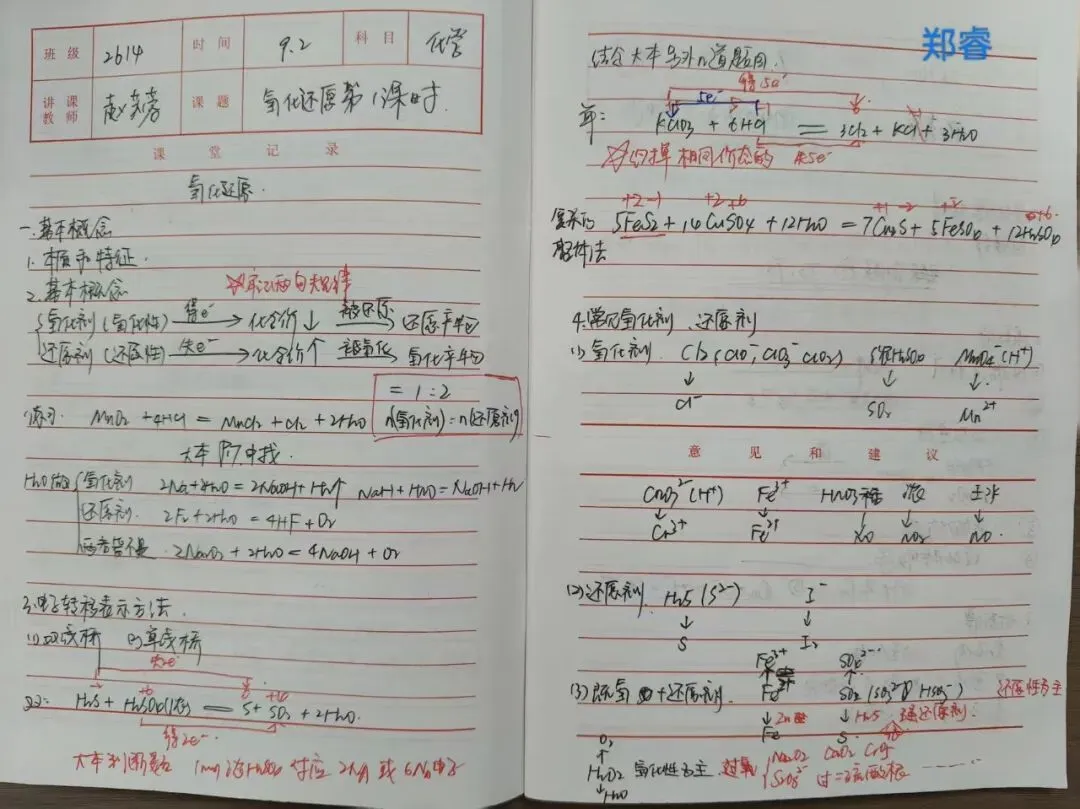 班级 2614 时间 9.2 科目 化学
讲课教师 赵 课题 氧化还原第1课时
课堂记录
氧化还原.
一.基本概念
1. 本质和特征.
2. 基本概念 ☆牢记两句
氧化剂(氧化性) 得e⁻→ 化合价↓ 被还原→ 还原产物
还原剂(还原性) 失e⁻→ 化合价↑ 被氧化→ 氧化产物
= 1:2
练习: MnO₂ + 4HCl = MnCl₂ + Cl₂ + 2H₂O n(氧化剂)=n(还原剂)
大本 P7中找.
H₂O做 氧化剂 2Na+2H₂O=2NaOH+H₂↑ NaH+H₂O=NaOH+H₂
还原剂. 2F₂+2H₂O=4HF+O₂
两者皆不是. 2Na₂O₂+2H₂O=4NaOH+O₂
3.电子转移表示方法.
(1)双线桥 (2)单线桥
失2e⁻
H₂S + H₂SO₄(浓) = S+ SO₂ +2H₂O.
得2e⁻
大本 判断 1mol浓H₂SO₄ 对应 2NA 或 6NA电子
郑睿
结合大本另外几道题目.
得5e⁻
5e⁻
KClO₃ + 6HCl = 3Cl₂+ KCl + 3H₂O
☆ 相同价态的 失5e⁻
+2 -1 +2 +6 +1 -2 +2 +6
复杂的 5FeS₂+14CuSO₄+12H₂O=7Cu₂S+5FeSO₄+12H₂SO₄
法
4.常见氧化剂、还原剂
(1)氧化剂. Cl₂(ClO⁻, ClO₃⁻ ClO₂) 浓H₂SO₄ MnO₄⁻(H⁺)
↓ ↓ ↓
Cl⁻ SO₂ Mn²⁺
意见和建议
Cr₂O₇²⁻(H⁺) Fe³⁺ HNO₃稀 浓
↓ ↓ ↓ ↓ ↓
Cr³⁺ Fe²⁺ NO NO₂ NO.
(2)还原剂. H₂S(S²⁻) I⁻
↓ ↓
S I₂
Fe³⁺ SO₄²⁻
(3)既氧 +还原剂. Fe²⁺ SO₂(SO₃²⁻ HSO₃⁻) 还原性为主
↓Zn ↓H₂S 强还原剂.
Fe S
O₂
↑
H₂O₂ 氧化性为主 过氧 Na₂O₂ CaO₂
↓H₂O S₂O₈²⁻ 过二硫酸根